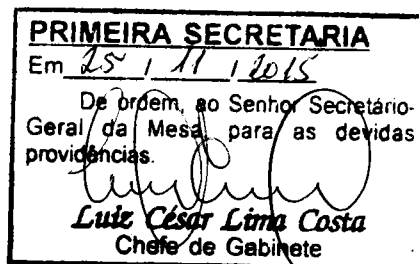 PRIMEIRA SECRETARIA
Em 25 / 11 / 2015
De ordem, ao Senhor Secretário-
Geral da Mesa, para as devidas
providências.
Luiz César Lima Costa
Chefe de Gabinete